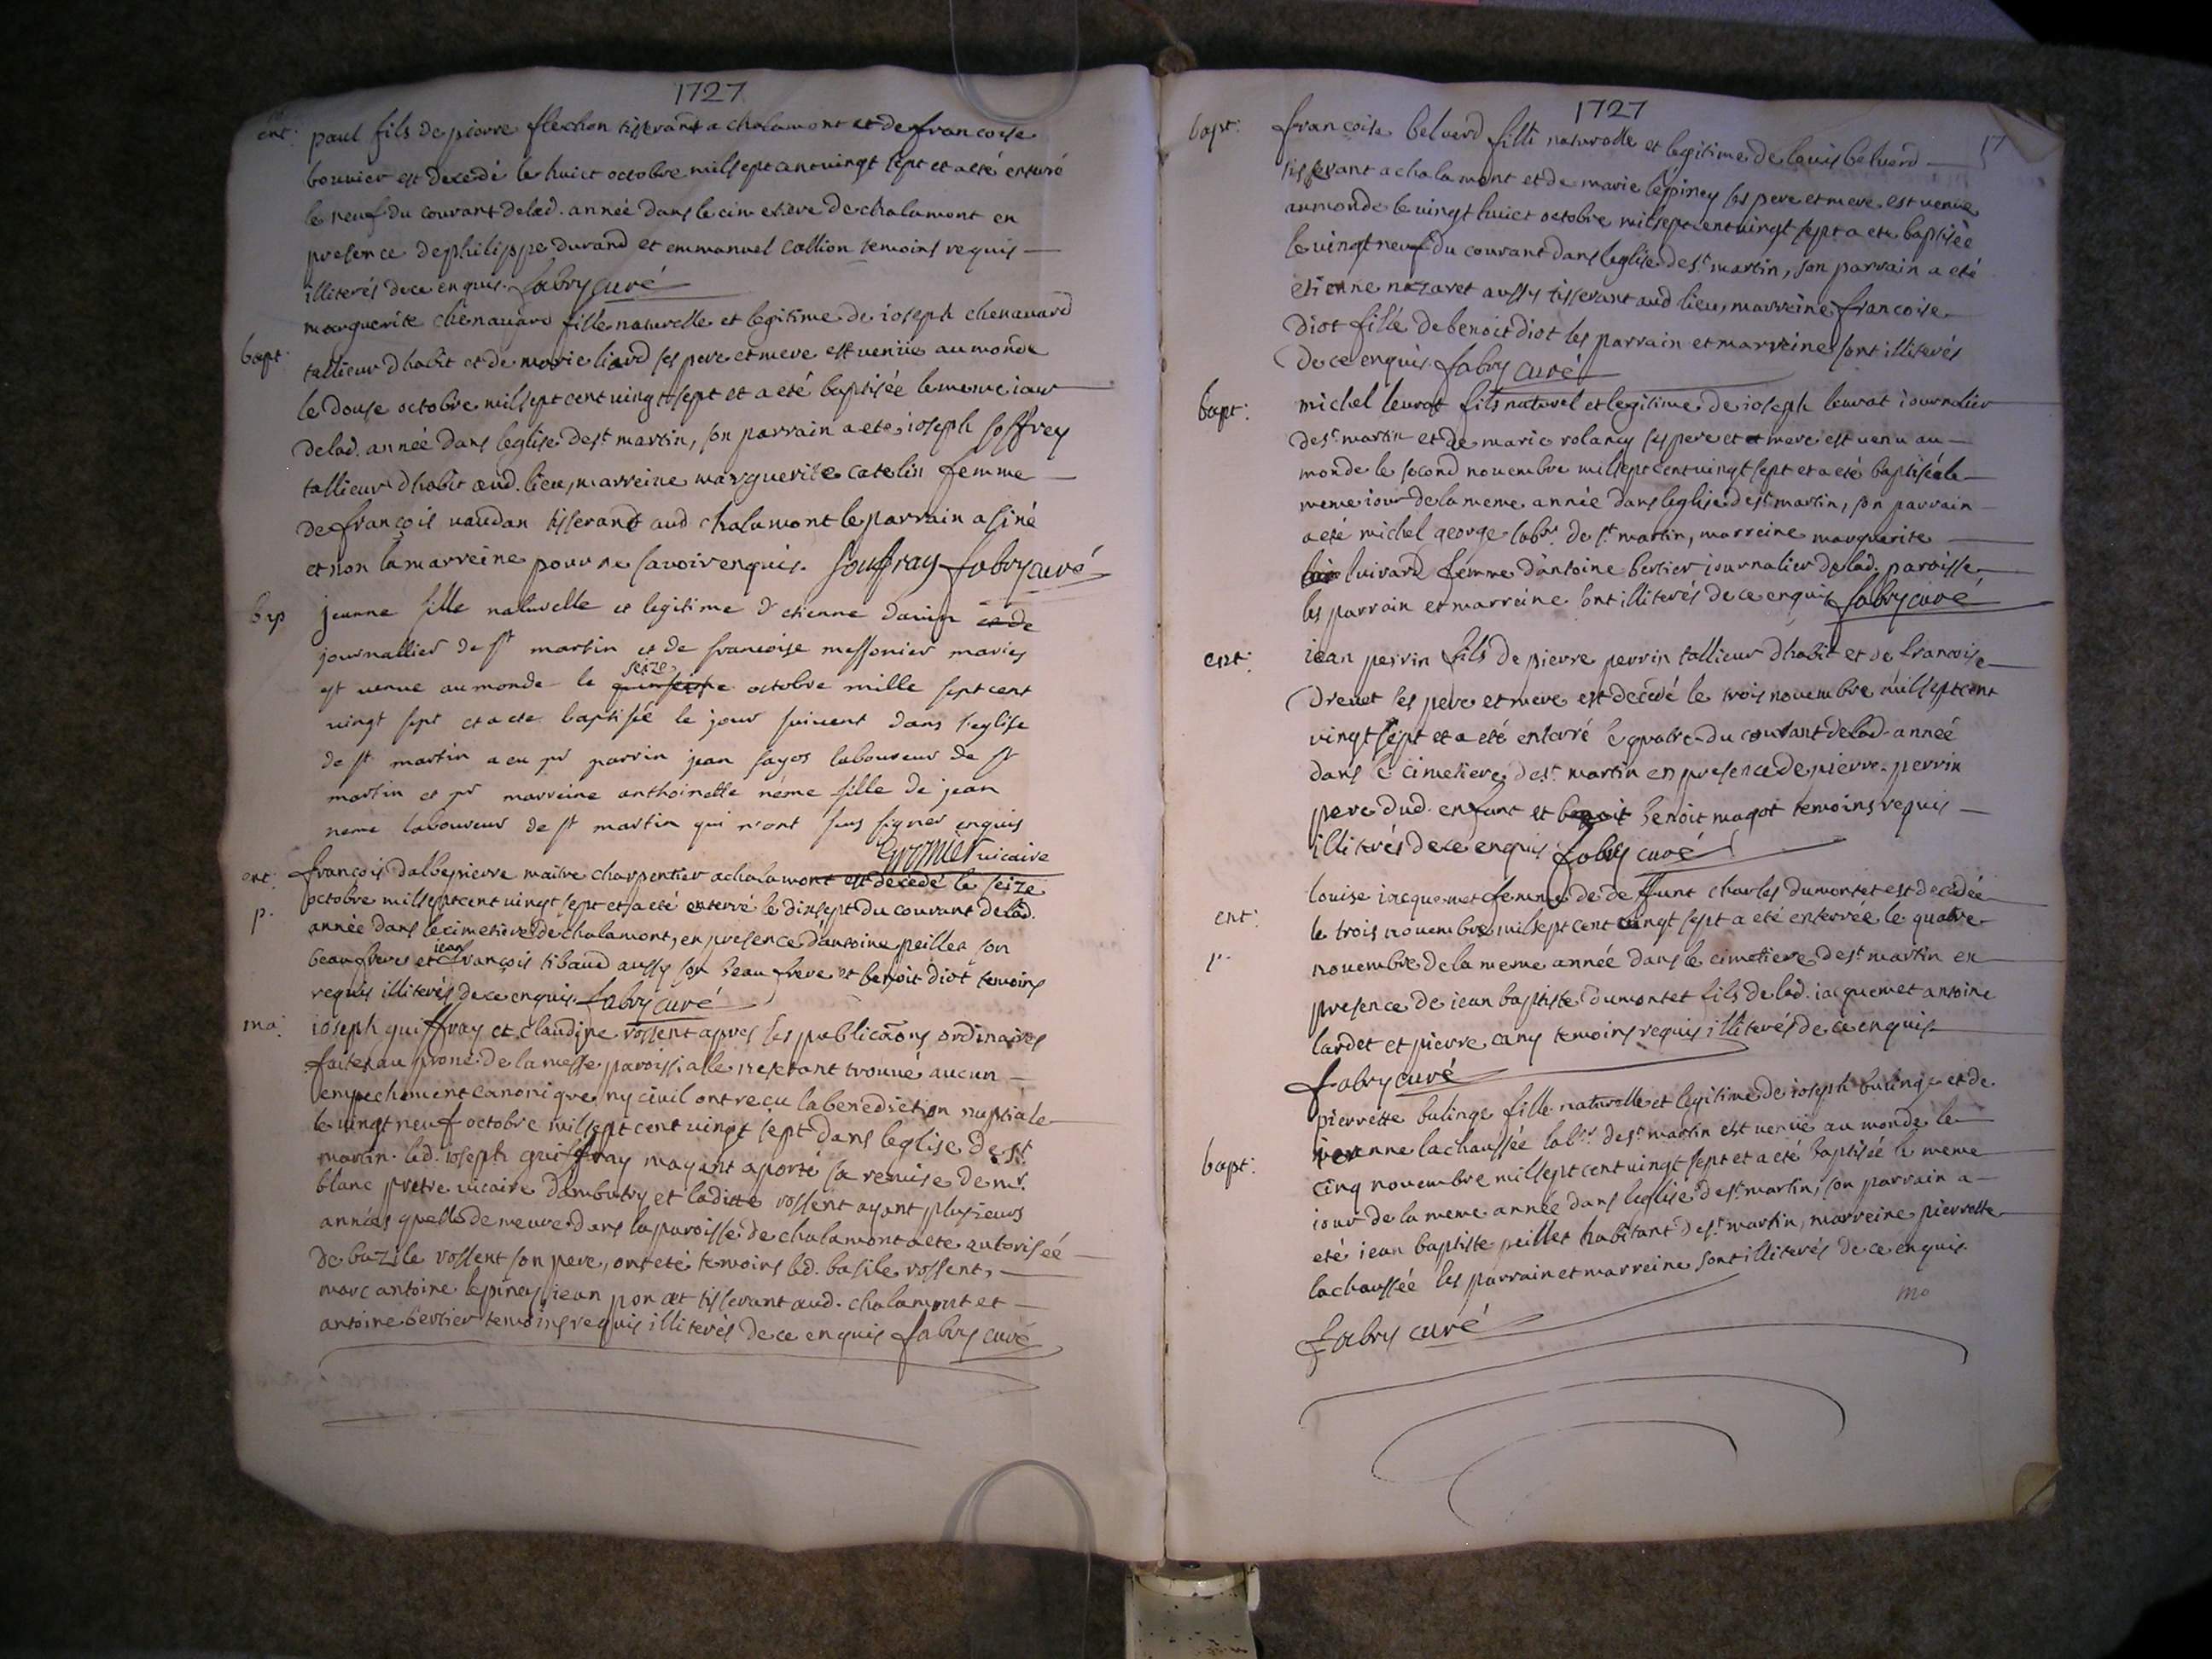 1727
ent: paul fils de pierre flechon tisserand a chalamont et de francoise
bouvier est decedé le huict octobre mil sept cent vingt sept et a eté enterré
le neuf du courant de lad. année dans le cimetiere de chalamont en
presence de philippe durand et emmanuel callion temoins requis
illiterés de ce enquis. fabry curé
bapt: marguerite chenavard fille naturelle et legitime de ioseph chenavard
tallieur dhabit et de marie liard ses pere et mere est venüe au monde
le douse octobre mil sept cent vingt sept et a eté baptisée le meme iour
de lad. année dans leglise de st martin, son parrain a eté ioseph soffrey
tallieur dhabit aud. lieu, marreine marguerite catelin femme
de françois vaudan tisserand aud chalamont le parrain a siné
et non la marreine pour ne savoir enquis. Souffray fabry curé
bap jeanne fille naturelle et legitime d'etienne danin et de
journallier de st martin et de francoise messonier mariés
est venue au monde le seize octobre mille sept cent
vingt sept et a ete baptisée le jour suivent dans l'eglise
de st martin a eu pr parrin jean sayos laboureur de st
martin et pr marreine anthoinette néme fille de jean
neme laboureur de st martin qui n'ont sus signer enquis
Grynier vicaire
ent: p. françois dalbepierre maitre charpentier a chalamont est decedé le seize
octobre mil sept cent vingt sept et a eté enterré le dixsept du courant de lad.
année dans le cimetiere de chalamont, en presence d'antoine peillet son
beaufrere et iean françois tibaud aussy son beau frere et benoit diot temoins
requis illiterés de ce enquis fabry curé
ma: ioseph guiffray et claudine rossent apres les publicaõns ordinaires
faites au prone de la messe paroissialle ne setant trouvé aucun
empechement canonique ny civil ont reçu la benediction nuptiale
le vingt neuf octobre mil sept cent vingt sept dans leglise de st
martin. led. ioseph guiffray mayant aporté sa remise de mr.
blanc pretre vicaire dambutry et laditte rossent ayant plusieurs
années quelle demeure dans la paroisse de chalamont a ete autorisée
de bazile rossent son pere, ont eté temoins led. basile rossent,
marc antoine lepiney, iean poncet tisserant aud. chalamont et
antoine bertier temoins requis illiterés de ce enquis fabry curé
1727
17
bapt: francoise belverd fille naturelle et legitime de louis belverd
tisserant a chalamont et de marie lepiney ses pere et mere est venüe
au monde le vingt huict octobre mil sept cent vingt sept a ete baptisée
le vingt neuf du courant dans leglise de st martin, son parrain a eté
etienne nazaret aussy tisserant aud lieu, marreine francoise
diot fille de benoit diot les parrain et marreine sont illiterés
de ce enquis fabry curé
bapt: michel leurat fils naturel et legitime de ioseph leurat iournalier
de st martin et de marie rolancy ses pere et mere est venu au
monde le second novembre mil sept cent vingt sept et a eté baptisé le
meme iour de la meme année dans leglise de st martin, son parrain
a eté michel george labr. de st martin, marreine marguerite
luivard femme d'antoine bertier iournalier de lad. paroisse
les parrain et marreine sont illiterés de ce enquis fabry curé
ent: iean perrin fils de pierre perrin tallieur dhabit et de francoise
drevet ses pere et mere est decedé le trois novembre mil sept cent
vingt sept et a eté enterré le quatre du courant de lad. année
dans le cimetiere de st martin en presence de pierre perrin
pere dud. enfant et benoit magot temoins requis
illiterés de ce enquis fabry curé
ent: p. louise iacquemet femme de deffunt charles dumontet est decedée
le trois novembre mil sept cent vingt sept a eté enterrée le quatre
novembre de la meme année dans le cimetiere de st martin en
presence de iean baptiste dumontet fils de lad. iacquemet antoine
lardet et pierre cany temoins requis illiterés de ce enquis
fabry curé
bapt: pierrette bulinge fille naturelle et legitime de ioseph bulinge et de
ieanne lachaussée labrs. de st martin est venüe au monde le
cinq novembre mil sept cent vingt sept et a eté baptisée le meme
iour de la meme année dans leglise de st martin, son parrain a
eté iean baptiste peillet habitant de st martin, marreine pierrette
lachaussée les parrain et marreine sont illiterés de ce enquis.
mo
fabry curé